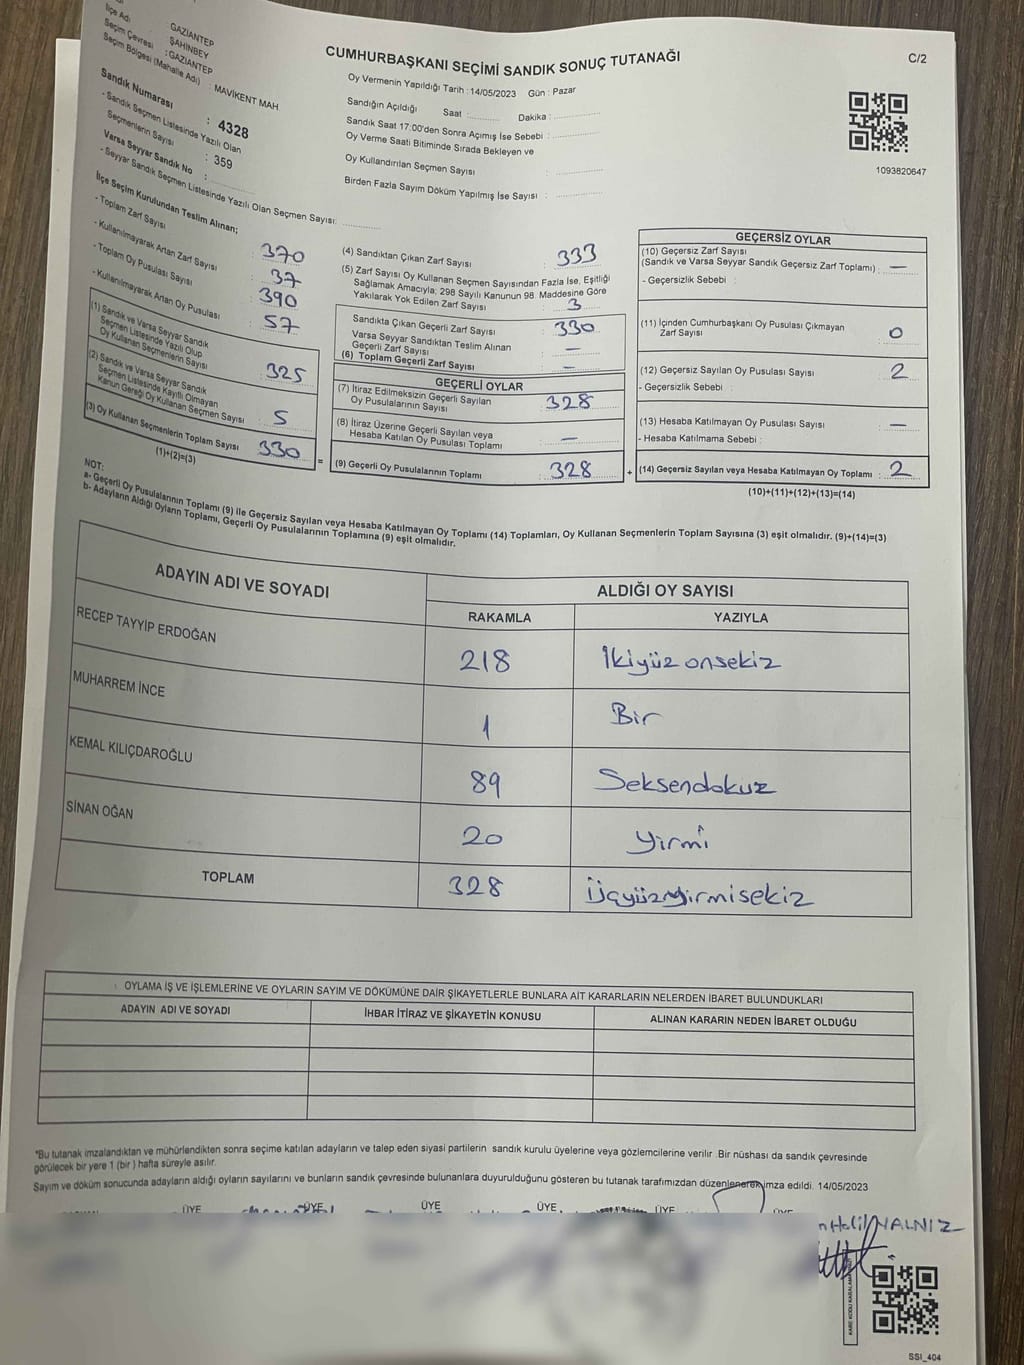 İlçe Adı
GAZİANTEP
ŞAHİNBEY
Seçim Çevresi : GAZİANTEP
Seçim Bölgesi (Mahalle Adı) : MAVİKENT MAH
Sandık Numarası : 4328
- Sandık Seçmen Listesinde Yazılı Olan
Seçmenlerin Sayısı : 359
Varsa Seyyar Sandık No :
- Seyyar Sandık Seçmen Listesinde Yazılı Olan Seçmen Sayısı:
CUMHURBAŞKANI SEÇİMİ SANDIK SONUÇ TUTANAĞI
C/2
Oy Vermenin Yapıldığı Tarih : 14/05/2023 Gün : Pazar
Sandığın Açıldığı Saat : Dakika :
Sandık Saat 17:00'den Sonra Açımış İse Sebebi :
Oy Verme Saati Bitiminde Sırada Bekleyen ve
Oy Kullandırılan Seçmen Sayısı :
Birden Fazla Sayım Döküm Yapılmış İse Sayısı :
1093820647
İlçe Seçim Kurulundan Teslim Alınan;
- Toplam Zarf Sayısı : 370
- Kullanılmayarak Artan Zarf Sayısı : 37
- Toplam Oy Pusulası Sayısı : 390
- Kullanılmayarak Artan Oy Pusulası : 57
(1) Sandık ve Varsa Seyyar Sandık
Seçmen Listesinde Yazılı Olup
Oy Kullanan Seçmenlerin Sayısı : 325
(2) Sandık ve Varsa Seyyar Sandık
Seçmen Listesinde Kayıtlı Olmayan
Kanun Gereği Oy Kullanan Seçmen Sayısı : 5
(3) Oy Kullanan Seçmenlerin Toplam Sayısı : 330
(1)+(2)=(3)
=
(4) Sandıktan Çıkan Zarf Sayısı : 333
(5) Zarf Sayısı Oy Kullanan Seçmen Sayısından Fazla İse, Eşitliği
Sağlamak Amacıyla; 298 Sayılı Kanunun 98. Maddesine Göre
Yakılarak Yok Edilen Zarf Sayısı : 3
Sandıkta Çıkan Geçerli Zarf Sayısı : 330
Varsa Seyyar Sandıktan Teslim Alınan
Geçerli Zarf Sayısı : —
(6) Toplam Geçerli Zarf Sayısı : —
GEÇERLİ OYLAR
(7) İtiraz Edilmeksizin Geçerli Sayılan
Oy Pusulalarının Sayısı : 328
(8) İtiraz Üzerine Geçerli Sayılan veya
Hesaba Katılan Oy Pusulası Toplamı : —
(9) Geçerli Oy Pusulalarının Toplamı : 328
+
GEÇERSİZ OYLAR
(10) Geçersiz Zarf Sayısı
(Sandık ve Varsa Seyyar Sandık Geçersiz Zarf Toplamı) : —
- Geçersizlik Sebebi :
(11) İçinden Cumhurbaşkanı Oy Pusulası Çıkmayan
Zarf Sayısı : 0
(12) Geçersiz Sayılan Oy Pusulası Sayısı : 2
- Geçersizlik Sebebi :
(13) Hesaba Katılmayan Oy Pusulası Sayısı : —
- Hesaba Katılmama Sebebi :
(14) Geçersiz Sayılan veya Hesaba Katılmayan Oy Toplamı : 2
(10)+(11)+(12)+(13)=(14)
NOT:
a- Geçerli Oy Pusulalarının Toplamı (9) ile Geçersiz Sayılan veya Hesaba Katılmayan Oy Toplamı (14) Toplamları, Oy Kullanan Seçmenlerin Toplam Sayısına (3) eşit olmalıdır. (9)+(14)=(3)
b- Adayların Aldığı Oyların Toplamı, Geçerli Oy Pusulalarının Toplamına (9) eşit olmalıdır.
ADAYIN ADI VE SOYADI
ALDIĞI OY SAYISI
RAKAMLA YAZIYLA
RECEP TAYYİP ERDOĞAN 218 İkiyüz onsekiz
MUHARREM İNCE 1 Bir
KEMAL KILIÇDAROĞLU 89 Seksendokuz
SİNAN OĞAN 20 Yirmi
TOPLAM 328 Üçyüzyirmisekiz
OYLAMA İŞ VE İŞLEMLERİNE VE OYLARIN SAYIM VE DÖKÜMÜNE DAİR ŞİKAYETLERLE BUNLARA AİT KARARLARIN NELERDEN İBARET BULUNDUKLARI
ADAYIN ADI VE SOYADI İHBAR İTİRAZ VE ŞİKAYETİN KONUSU ALINAN KARARIN NEDEN İBARET OLDUĞU
*Bu tutanak imzalandıktan ve mühürlendikten sonra seçime katılan adayların ve talep eden siyasi partilerin sandık kurulu üyelerine veya gözlemcilerine verilir .Bir nüshası da sandık çevresinde
görülecek bir yere 1 (bir ) hafta süreyle asılır.
Sayım ve döküm sonucunda adayların aldığı oyların sayılarını ve bunların sandık çevresinde bulunanlara duyurulduğunu gösteren bu tutanak tarafımızdan düzenlenerek imza edildi. 14/05/2023
ÜYE ÜYE ÜYE ÜYE ÜYE ÜYE
Halil YALNIZ
SSI_404